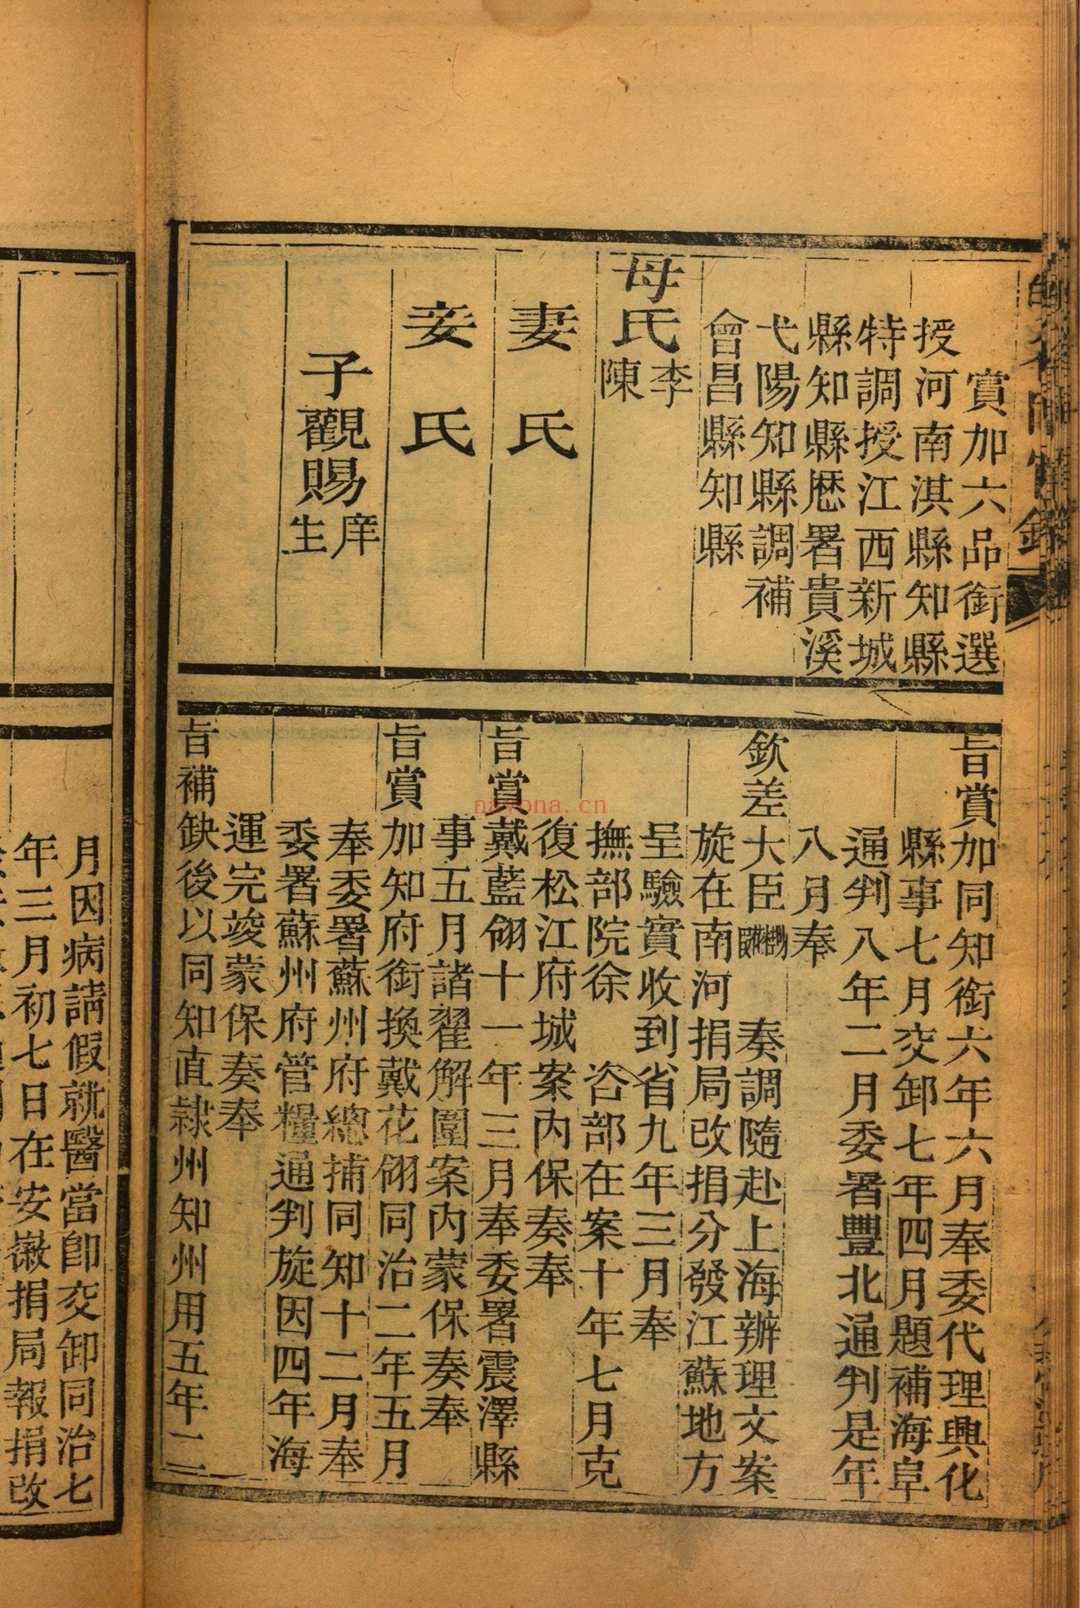 賞加六品銜選
授河南淇縣知縣
特調授江西新城
縣知縣歷署貴溪
弋陽知縣調補
會昌縣知縣
母氏李
陳
妻氏
妾氏
子觀賜庠
生
旨賞加同知銜六年六月奉委代理興化
縣事七月交卸七年四月題補海阜
通判八年二月委署豐北通判是年
八月奉
欽差大臣 奏調隨赴上海辦理文案
旋在南河捐局改捐分發江蘇地方
呈驗實收到省九年三月奉
撫部院徐 咨部在案十年七月克
復松江府城案內保奏奉
旨賞戴藍翎十一年三月奉委署震澤縣
事五月諸翟解圍案內蒙保奏奉
旨賞加知府銜換戴花翎同治二年五月
奉委署蘇州府總捕同知十二月奉
委署蘇州府管糧通判旋因四年海
運完竣蒙保奏奉
旨補缺後以同知直隸州知州用五年二
月因病請假就醫當卽交卸同治七
年三月初七日在安徽捐局報捐改
nayona.cn